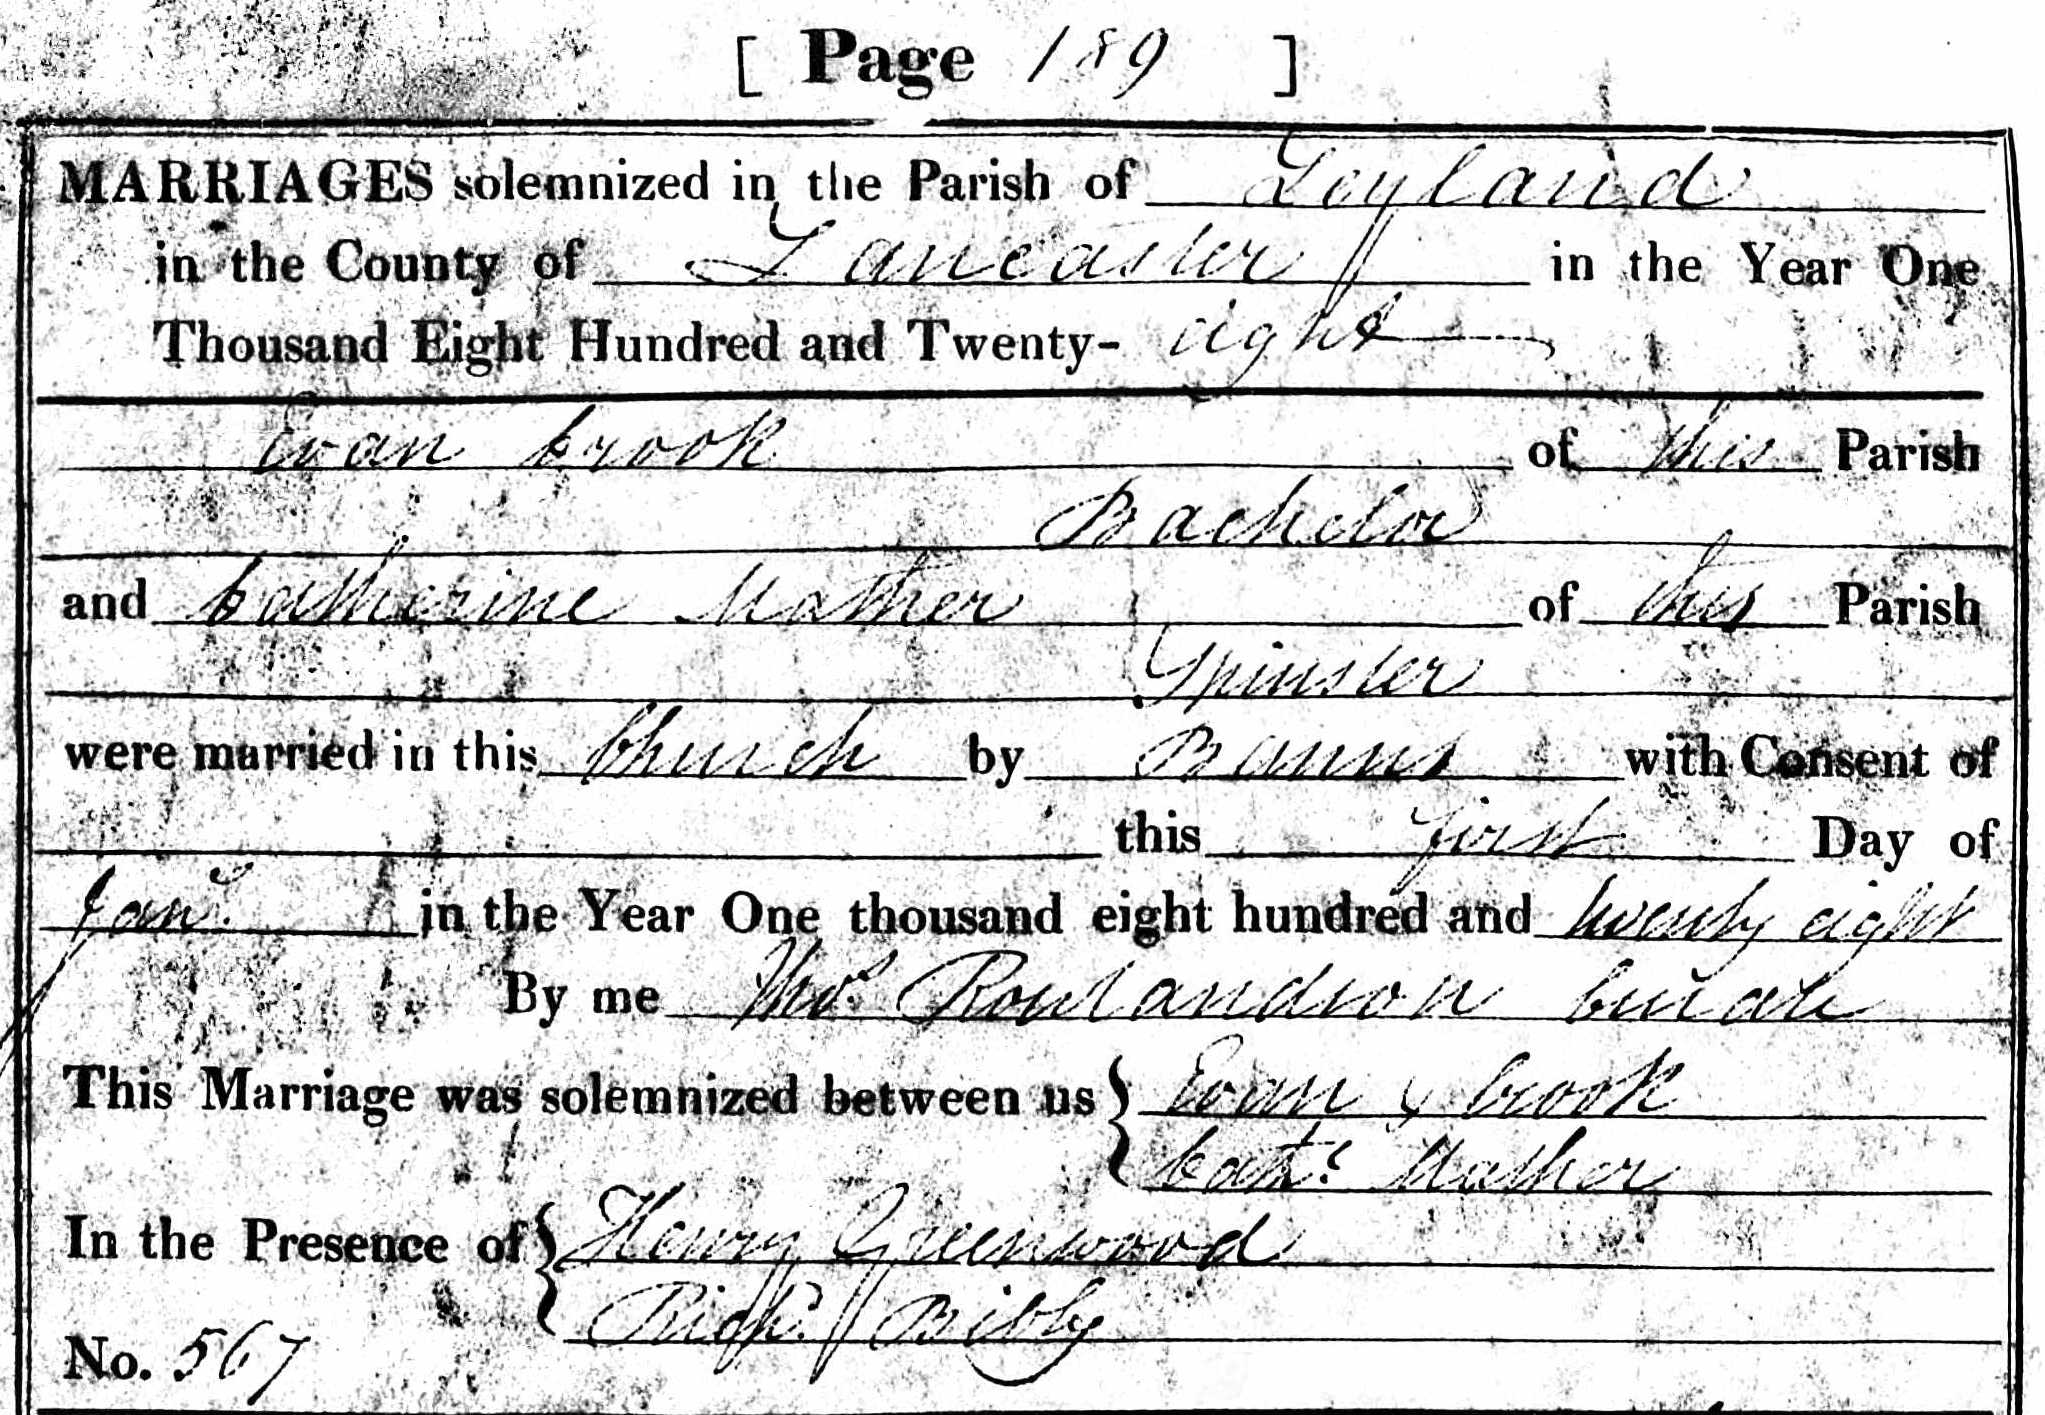 [ Page 189 ]
MARRIAGES solemnized in the Parish of Leyland
in the County of Lancaster in the Year One
Thousand Eight Hundred and Twenty- eight
Evan Crook of this Parish
Bachelor
and Catherine Mather of this Parish
Spinster
were married in this Church by Banns with Consent of
this first Day of
Jany. in the Year One thousand eight hundred and twenty eight
By me Thos. Rowlandson Curate
This Marriage was solemnized between us } Evan x Crook
Cathe. Mather
In the Presence of } Henry Greenwood
Richd. Bibby
No. 567